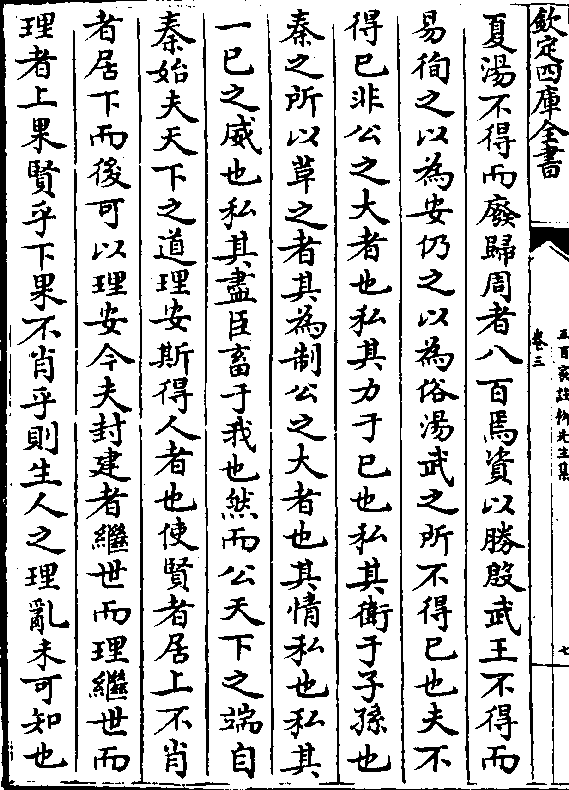 欽定四庫全書
五百家註柳先生集
卷三
七
夏湯不得而廢歸周者八百焉資以勝殷武王不得而
易徇之以為安仍之以為俗湯武之所不得已也夫不
得已非公之大者也私其力于已也私其衛于子孫也
秦之所以革之者其為制公之大者也其情私也私其
一已之威也私其盡臣畜于我也然而公天下之端自
秦始夫天下之道理安斯得人者也使賢者居上不肖
者居下而後可以理安今夫封建者繼世而理繼世而
理者上果賢乎下果不肖乎則生人之理亂未可知也